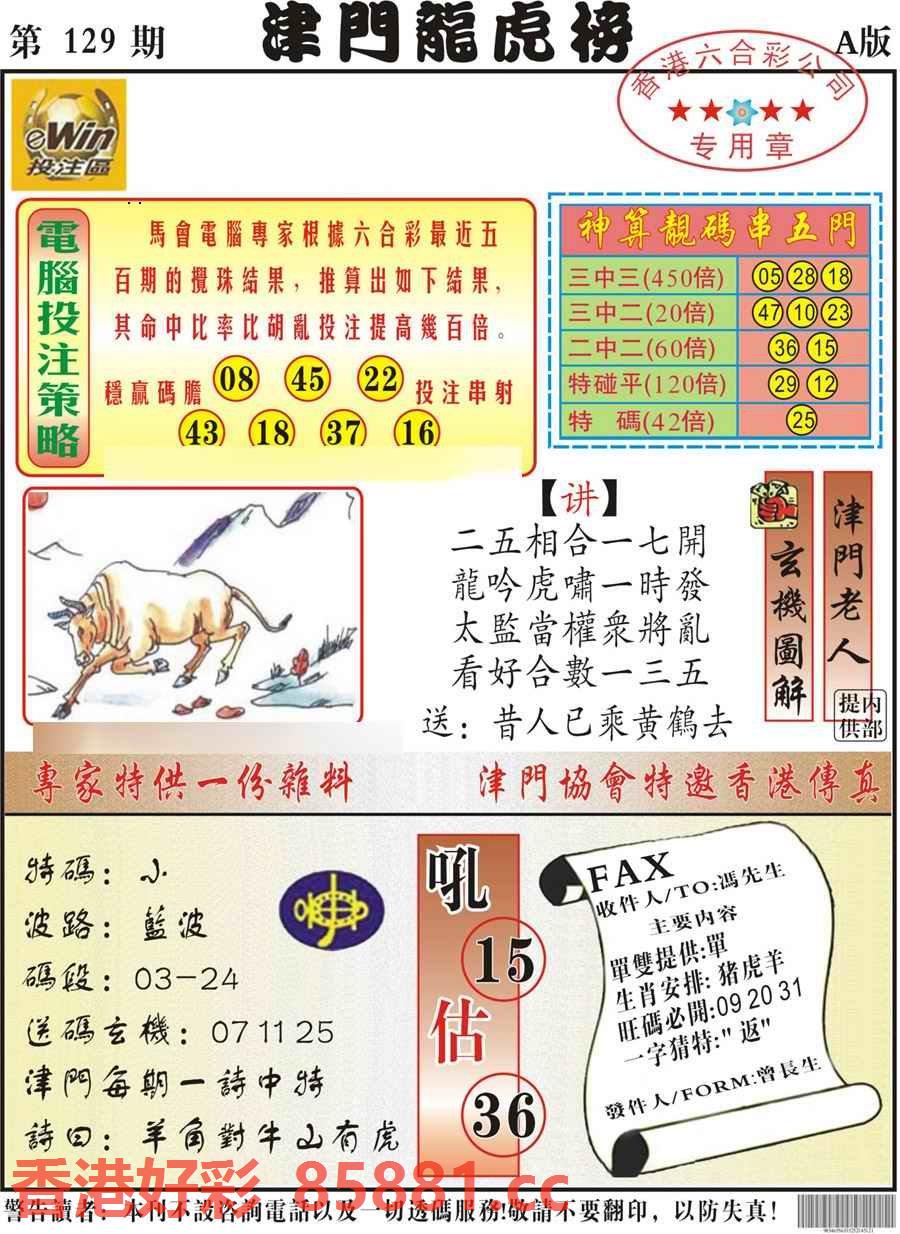 第 129 期
津門龍虎榜
A版
香港六合彩公司
专用章
eWin
投注區
電腦投注策略
馬會電腦專家根據六合彩最近五
百期的攪珠結果，推算出如下結果，
其命中比率比胡亂投注提高幾百倍。
穩贏碼膽 08 45 22 投注串射
43 18 37 16
神算靚碼串五門
三中三(450倍) 05 28 18
三中二(20倍) 47 10 23
二中二(60倍) 36 15
特碰平(120倍) 29 12
特　碼(42倍) 25
【讲】
二五相合一七開
龍吟虎嘯一時發
太監當權衆將亂
看好合數一三五
送：昔人已乘黄鶴去
玄機圖解
津門老人
内部提供
專家特供一份雜料
津門協會特邀香港傳真
特碼：小
波路：藍波
碼段：03-24
送碼玄機：07 11 25
津門每期一詩中特
詩曰：羊角對牛山有虎
吼
15
估
36
FAX
收件人/TO:馮先生
主要内容
單雙提供:單
生肖安排: 猪虎羊
旺碼必開:09 20 31
一字猜特:" 返"
發件人/FORM:曾長生
香港好彩 85881.cc
警告讀者：本刊不設咨詢電話以及一切透碼服務!敬請不要翻印，以防失真！